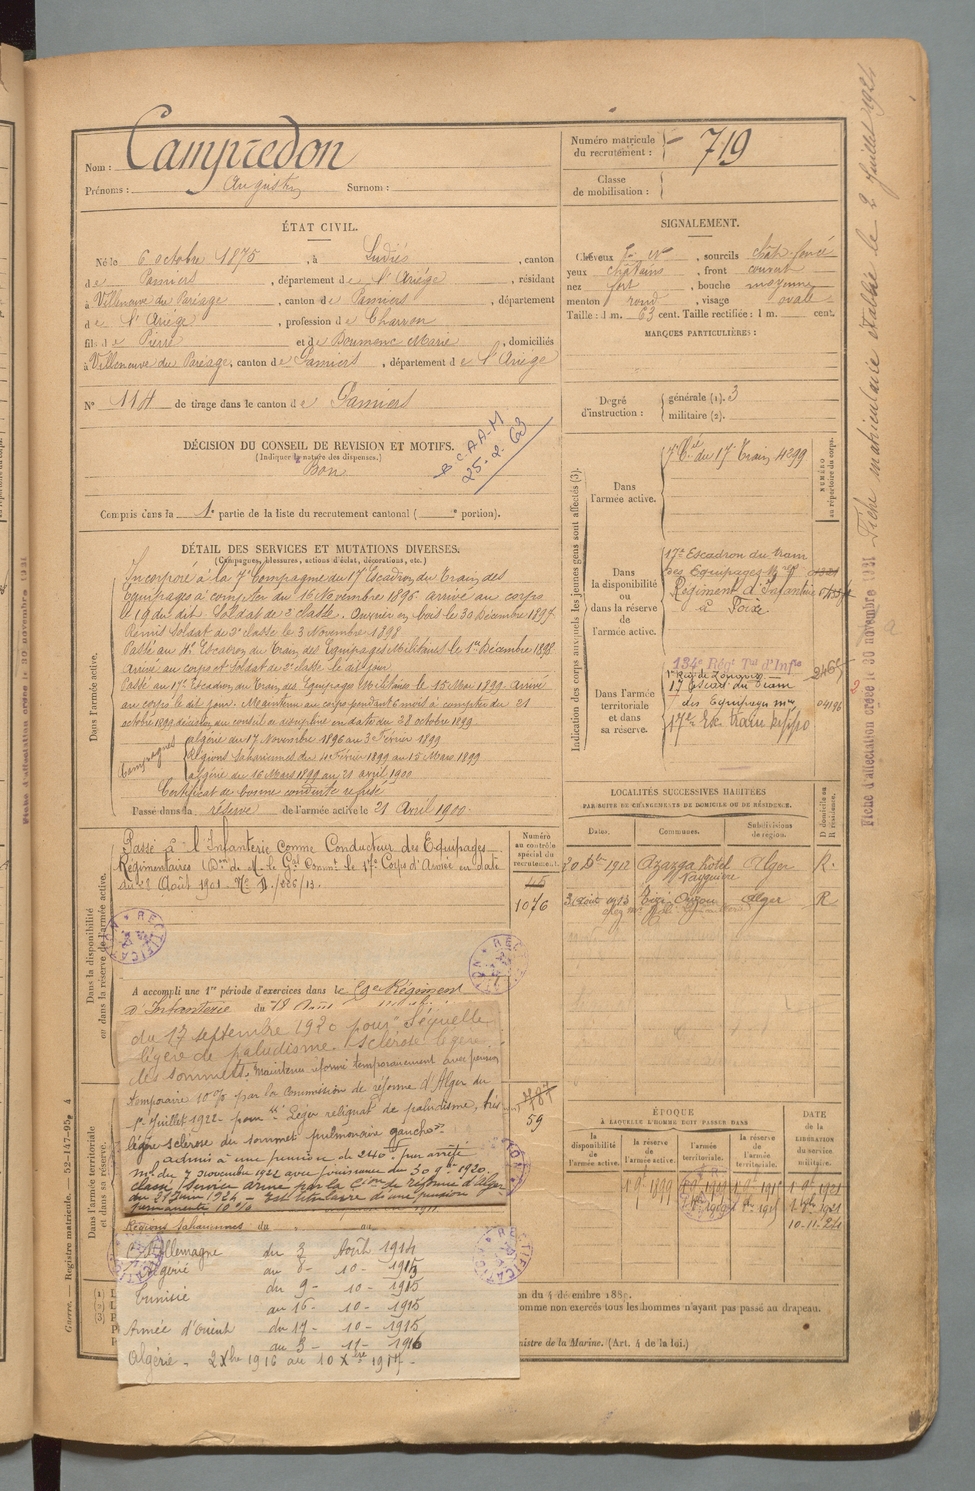 Nom : Campredon
Prénoms : Augustin Surnom :
Numéro matricule du recrutement : 719
Classe de mobilisation :
ÉTAT CIVIL.
Né le 6 octobre 1875, à Ludiès, canton
de Pamiers, département de l'Ariège, résidant
à Villeneuve du Paréage, canton de Pamiers, département
de l'Ariège, profession de Charron
fils de Pierre et de Boumenc Marie, domiciliés
à Villeneuve du Paréage, canton de Pamiers, département de l'Ariège
N° 114 de tirage dans le canton de Pamiers
SIGNALEMENT.
Cheveux, sourcils chât. foncé
yeux châtains, front couvert
nez fort, bouche moyenne
menton rond, visage ovale
Taille : 1 m. 63 cent. Taille rectifiée : 1 m. cent.
MARQUES PARTICULIÈRES :
Degré d'instruction : générale (1). 3
militaire (2).
DÉCISION DU CONSEIL DE REVISION ET MOTIFS.
(Indiquer la nature des dispenses.)
Bon
25-2-63
Compris dans la 1e partie de la liste du recrutement cantonal ( e portion).
DÉTAIL DES SERVICES ET MUTATIONS DIVERSES.
(Campagnes, blessures, actions d'éclat, décorations, etc.)
Dans l'armée active.
Incorporé à la 7e Compagnie du 17e Escadron du Train des
Equipages à compter du 16 Novembre 1896 arrivé au corps
le 19 du dit. Soldat de 2e classe. Ouvrier en bois le 30 Décembre 1897
Remis Soldat de 2e classe le 3 Novembre 1898
Passé au Escadron du Train des Equipages Militaires le 1er Décembre 1898
Arrivé au corps et Soldat de 2e classe le dit jour
Passé au 17e Escadron du Train des Equipages Militaires le 15 Mai 1899 arrivé
au corps le dit jour. Maintenu au corps pendant 6 mois à compter du 21
octobre 1899 décision du conseil de discipline en date du 28 octobre 1899
Campagnes
algérie du 17 Novembre 1896 au 3 Février 1899
Régions Sahariennes du 4 Février 1899 au 15 Mars 1899
algérie du 16 Mars 1899 au 21 avril 1900
Certificat de bonne conduite refusé
Passé dans la réserve de l'armée active le 21 Avril 1900
Dans la disponibilité ou dans la réserve de l'armée active.
Passé à l'Infanterie comme Conducteur des Equipages
Régimentaires (Don de M. le Gal Commt le 17e Corps d'Armée en date
du 28 Août 1901. No D/226/13.
Numéro au contrôle spécial du recrutement.
45
1076
RECTIFICATION
A accompli une 1re période d'exercices dans le 59e Régiment
d'Infanterie du 18 Août
du 17 septembre 1920 pour "Séquelle
légère de paludisme. Sclérose légère
des sommets. Maintenu réformé temporairement avec pension
temporaire 10% par la Commission de réforme d'Alger du
1er Juillet 1922 pour Léger reliquat de paludisme, très
légère sclérose du sommet pulmonaire gauche".
admis à une pension de 240f par arrêté
mel du 7 novembre 1922 avec jouissance du 30 9bre 1920.
Classé Service armé par la Con de réforme d'Alger
du 21 Juin 1924 - Est titulaire d'une pension
permanente 10%
Régions Sahariennes du au
59
Dans l'armée territoriale et dans sa réserve.
Allemagne du 3 Août 1914
Algérie au 8 - 10 - 1915
Tunisie du 9 - 10 - 1915
au 16 - 10 - 1915
Armée d'Orient du 17 - 10 - 1915
au 3 - 11 - 1916
Algérie - 2 Xbre 1916 au 10 Xbre 1917 -
Indication des corps auxquels les jeunes gens sont affectés (3).
NUMÉRO au répertoire du corps.
Dans l'armée active.
7e Cie du 17 Train 4299
Dans la disponibilité ou dans la réserve de l'armée active.
17e Escadron du train
des Equipages
Régiment d'Infanterie
à Foix
Dans l'armée territoriale et dans sa réserve.
134e Régt Tal d'Infie
17 Escad du Train
des Equipages mres 04196
17e
LOCALITÉS SUCCESSIVES HABITÉES
PAR SUITE DE CHANGEMENTS DE DOMICILE OU DE RÉSIDENCE.
Dates. Communes. Subdivisions de région. D domicile ou R résidence.
1912 Azazga hôtel Alger R.
1913 Tizi Ouzou Alger R
ÉPOQUE
À LAQUELLE L'HOMME DOIT PASSER DANS
la disponibilité de l'armée active. la réserve de l'armée active. l'armée territoriale. la réserve de l'armée territoriale.
DATE de la LIBÉRATION du service militaire.
1 9e 1899
10-11-24
on du 4 décembre 188
omme non exercés tous les hommes n'ayant pas passé au drapeau.
nistre de la Marine. (Art. 4 de la loi.)
Guerre. — Registre matricule. — 52-147-95. 4
Fiche matriculaire établie le 2 Juillet 1924
Fiche d'affectation créée le 30 novembre 1931